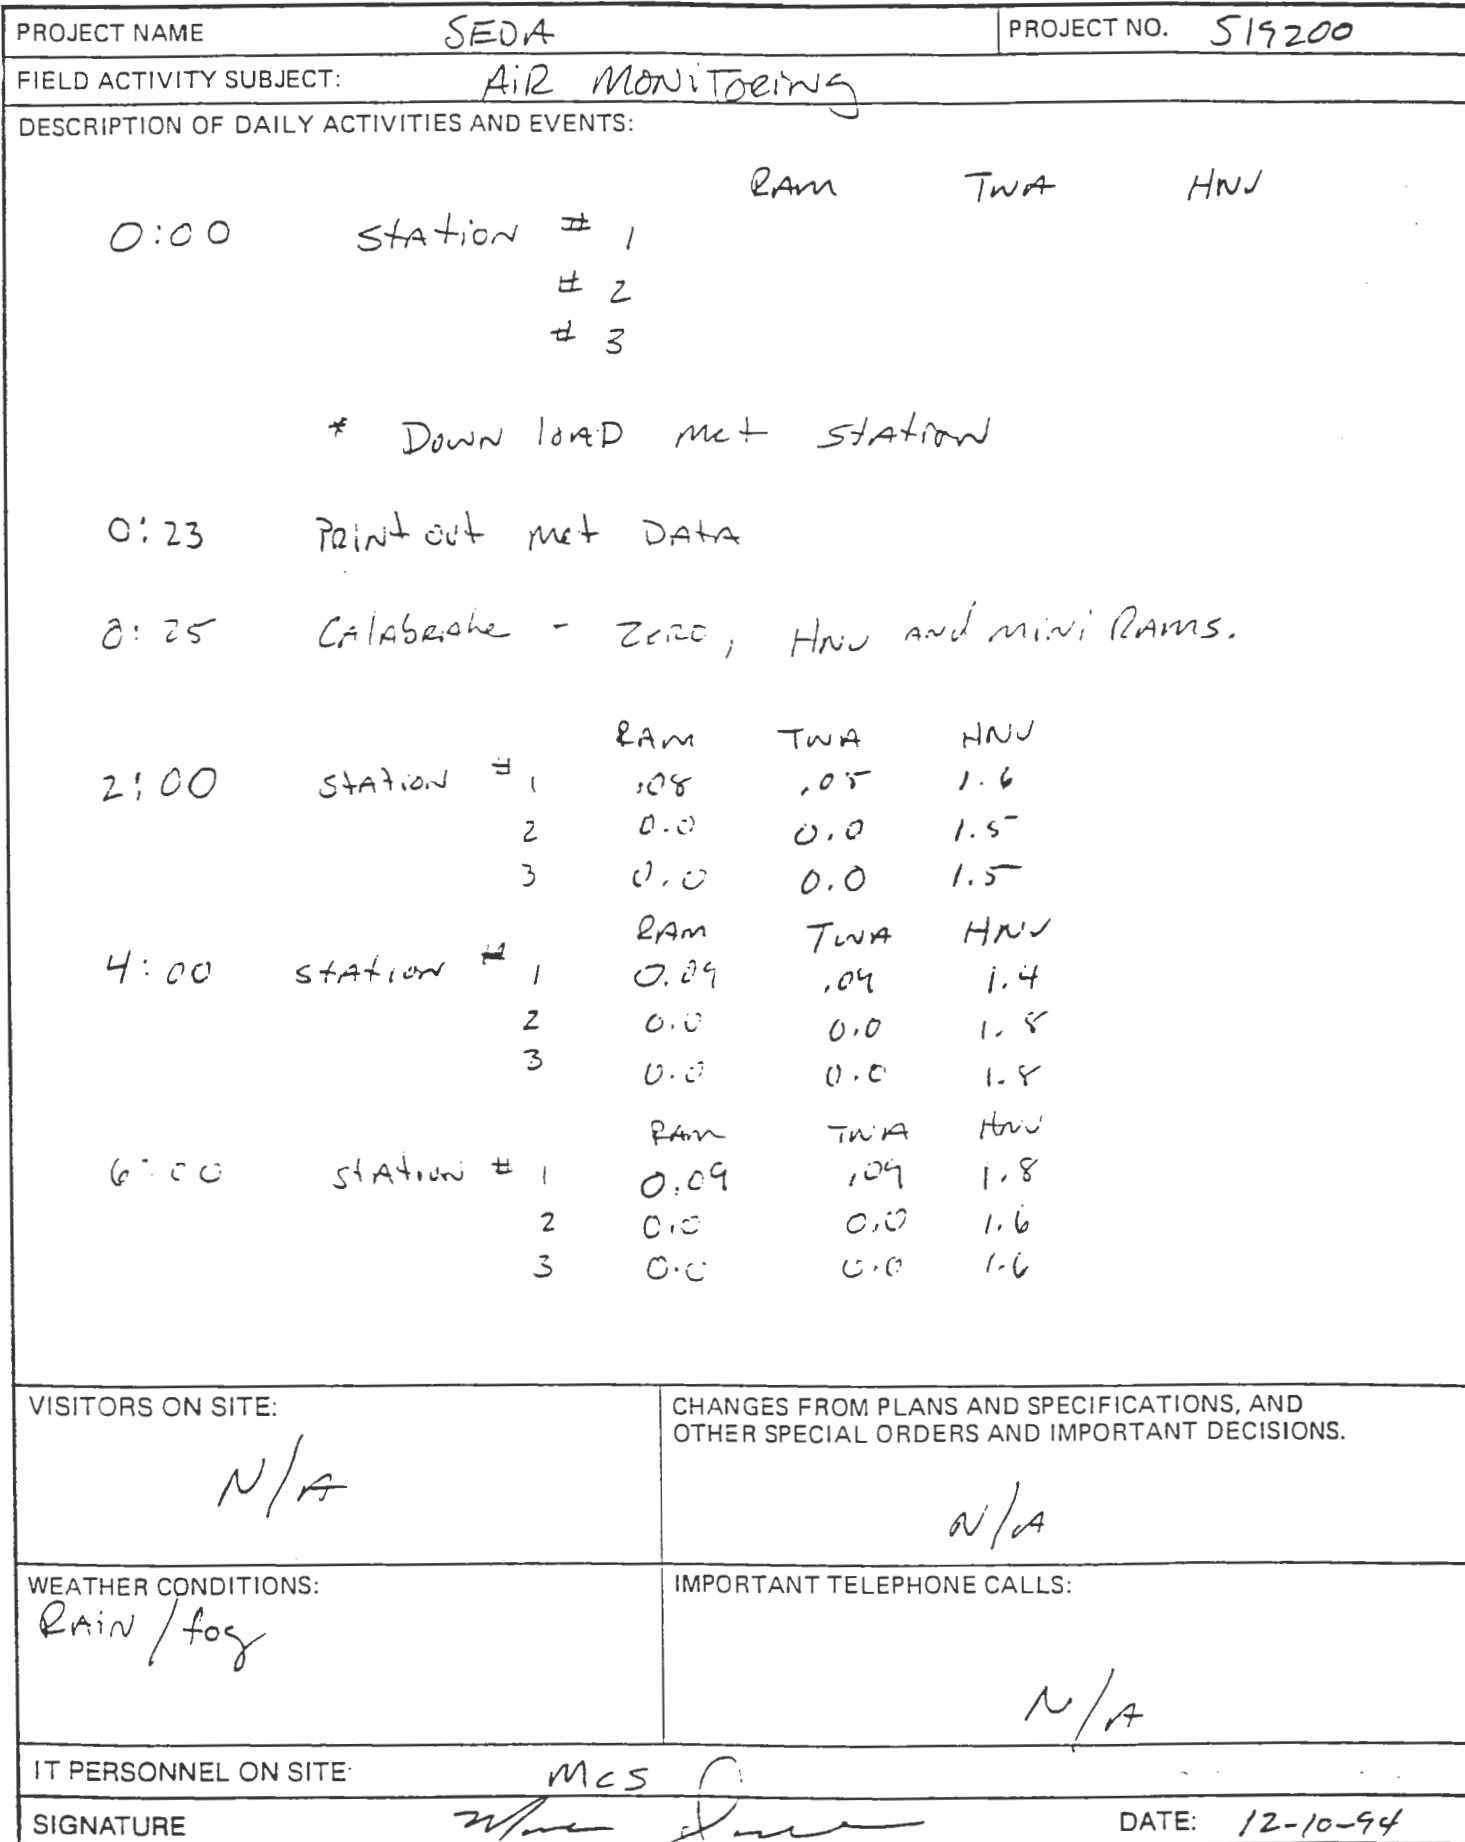 PROJECT NAME SEDA PROJECT NO. 519200
FIELD ACTIVITY SUBJECT: AiR MONiToring
DESCRIPTION OF DAILY ACTIVITIES AND EVENTS:
RAM TWA HNU
0:00 StAtion # 1
# 2
# 3
* Down loAD Met StAtion
0:23 PRiNt out Met DAtA
0:25 CAlAbRate - ZERO, HNU and mini RAMS.
RAM TWA HNU
2:00 StAtion # 1 .08 .05 1.6
2 0.0 0.0 1.5
3 0.0 0.0 1.5
RAM TWA HNU
4:00 StAtion # 1 0.09 .09 1.4
2 0.0 0.0 1.8
3 0.0 0.0 1.8
RAM TWA HNU
6:00 StAtion # 1 0.09 .09 1.8
2 0.0 0.0 1.6
3 0.0 0.0 1.6
VISITORS ON SITE:
N/A
CHANGES FROM PLANS AND SPECIFICATIONS, AND
OTHER SPECIAL ORDERS AND IMPORTANT DECISIONS.
N/A
WEATHER CONDITIONS:
RAiN / fog
IMPORTANT TELEPHONE CALLS:
N/A
IT PERSONNEL ON SITE MCS
SIGNATURE DATE: 12-10-94